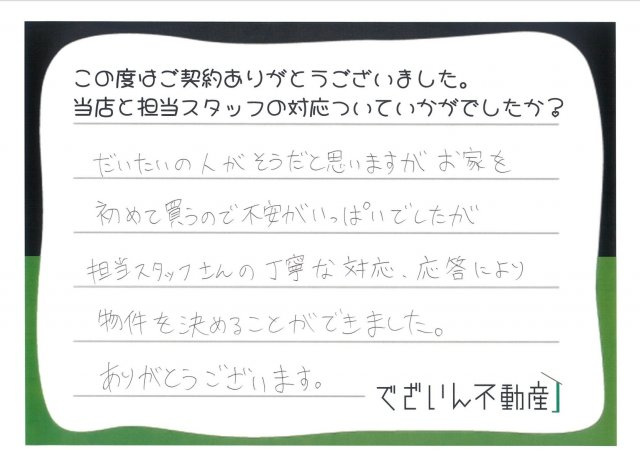 この度はご契約ありがとうございました。
当店と担当スタッフの対応ついていかがでしたか？
だいたいの人がそうだと思いますが お家を
初めて買うので不安がいっぱいでしたが
担当スタッフさんの丁寧な対応、応答により
物件を決めることができました。
ありがとうございます。
でざいん不動産